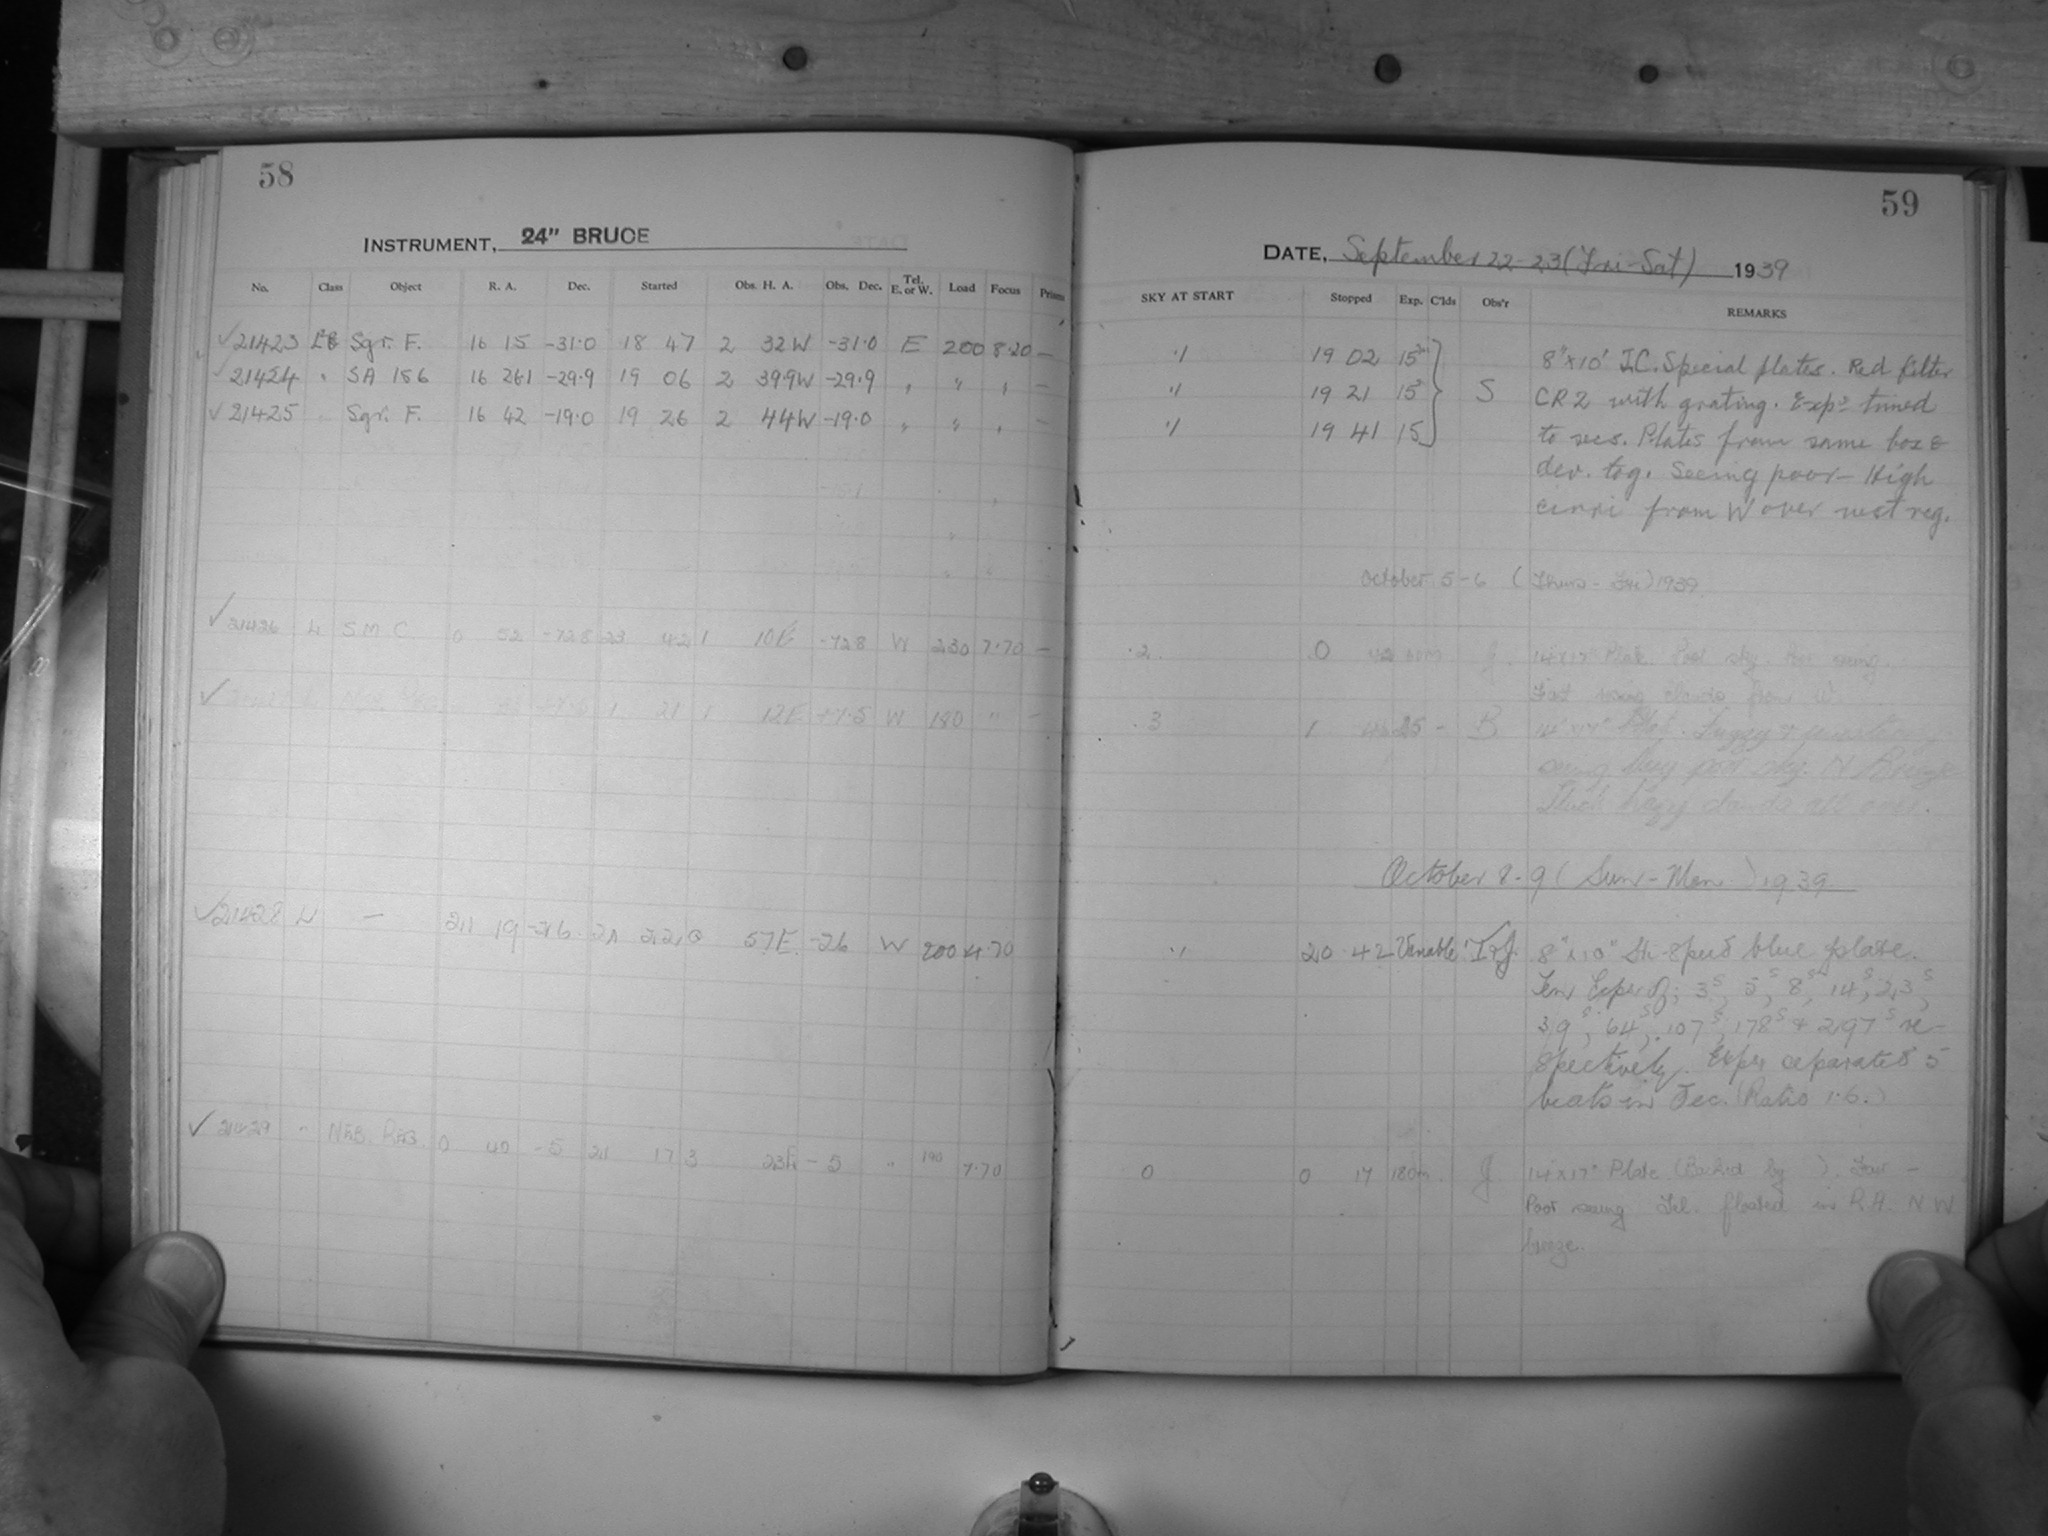 58
INSTRUMENT, 24" BRUCE
No. Class Object R. A. Dec. Started Obs. H. A. Obs. Dec. Tel. E. or W. Load Focus Prisms
✓21423 Sgr. F. 16 15 -31.0 18 47 2 32W -31.0 E 200 8.20 —
✓21424 " SA 156 16 26.1 -29.9 19 06 2 39.9W -29.9 " " " —
✓21425 Sgr. F. 16 42 -19.0 19 26 2 44W -19.0 " " " —
✓21426 L SMC 0 52 -72.8 23 42 1 10E -72.8 W 230 7.70 —
✓ 1 21 1 12E W 180 " —
✓21428 L — 21 19 -26 57E -26 W 200 4.70
✓21429 " NEB. REG. 0 40 -5 21 17 3 23E -5 " 190 7.70
59
DATE, September 22-23 (Fri-Sat) 1939
SKY AT START Stopped Exp. C'lds Obs'r REMARKS
·1 19 02 15 8"x10" I.C. Special plates. Red filter
"1 19 21 15 S CR2 with grating. Exps timed
"1 19 41 15 to secs. Plates from same box &
dev. tog. Seeing poor — High
cirri from W over west reg.
October 5-6 (Thurs - Fri) 1939
.2 0 42 60m J. 14"x17" Plate. Poor sky. Poor seeing.
Fast clouds from W.
.3 1 25 - B 14"x17"
seeing poor sky. N Breeze
Thick hazy clouds all over.
October 8-9 (Sun-Mon) 1939
·1 20 42 Variable 8"x10" speed blue plate.
Ten Exps of; 3s, 5s, 8s, 14s, 23s,
39s, 64s, 107s, 178s & 297s re-
spectively. Exps separated 5
beats in Dec. (Ratio 1.6.)
0 0 17 180m J 14"x17" Plate (Backed by ). Fair -
Poor seeing Tel. floated in R.A. NW
breeze.